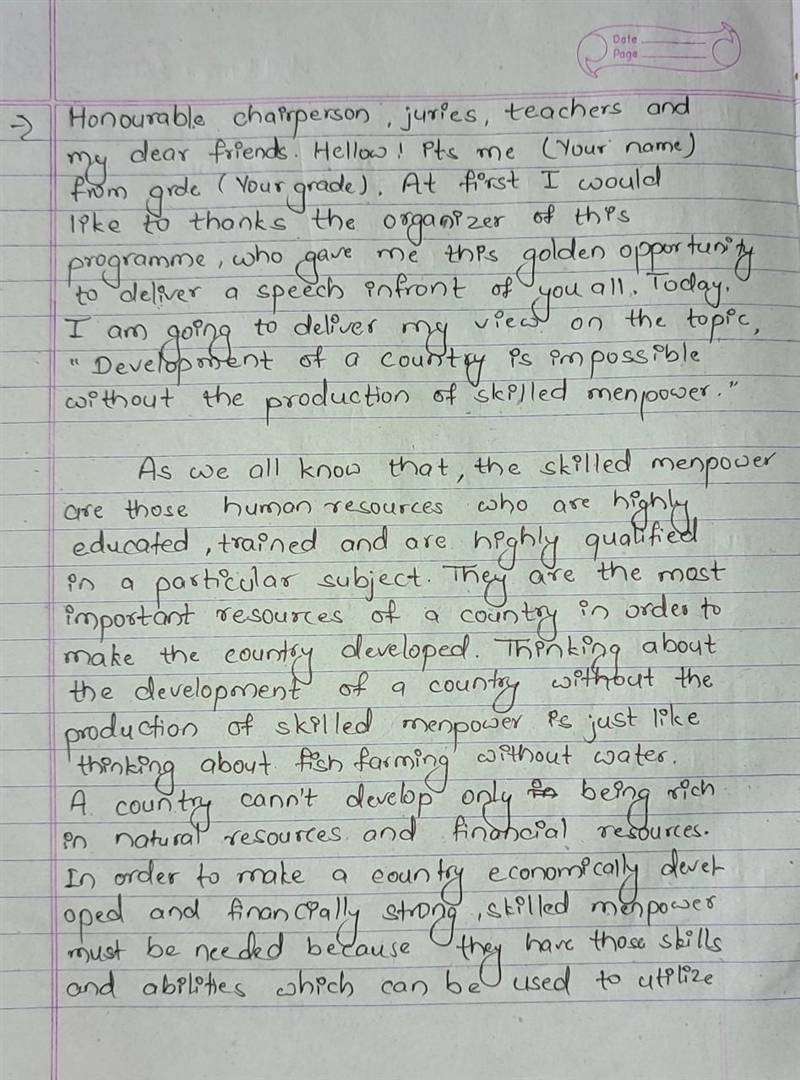 Date
Page
→ Honourable chairperson, juries, teachers and
my dear friends. Hellow! Its me (Your name)
from grde (Your grade). At first I would
like to thanks the organizer of this
programme, who gave me this golden opportunity
to deliver a speech infront of you all. Today,
I am going to deliver my view on the topic,
"Development of a country is impossible
without the production of skilled menpower."
As we all know that, the skilled menpower
are those human resources who are highly
educated, trained and are highly qualified
in a particular subject. They are the most
important resources of a country in order to
make the country developed. Thinking about
the development of a country without the
production of skilled menpower is just like
thinking about fish farming without water.
A country cann't develop only in being rich
in natural resources and financial resources.
In order to make a country economically devel
oped and financially strong, skilled menpower
must be needed because they have those skills
and abilities which can be used to utilize